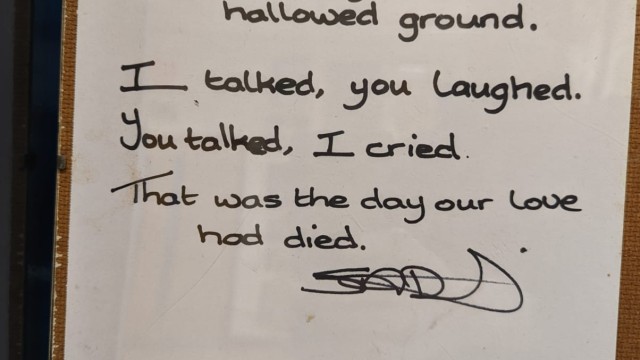 hallowed ground.
I talked, you laughed.
You talked, I cried.
That was the day our love
had died.